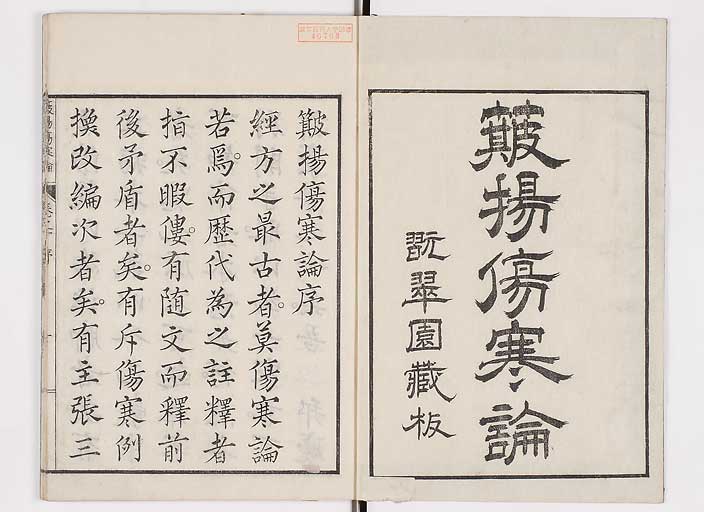 簸揚傷寒論
翫翠園藏板
簸揚傷寒論序
經方之最古者。莫傷寒論
若焉。而歷代為之註釋者
指不暇僂。有随文而釋前
後矛盾者矣。有斥傷寒例
換改編次者矣。有主張三
簸揚傷寒論 序